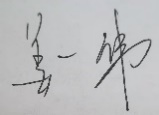 姜一帅